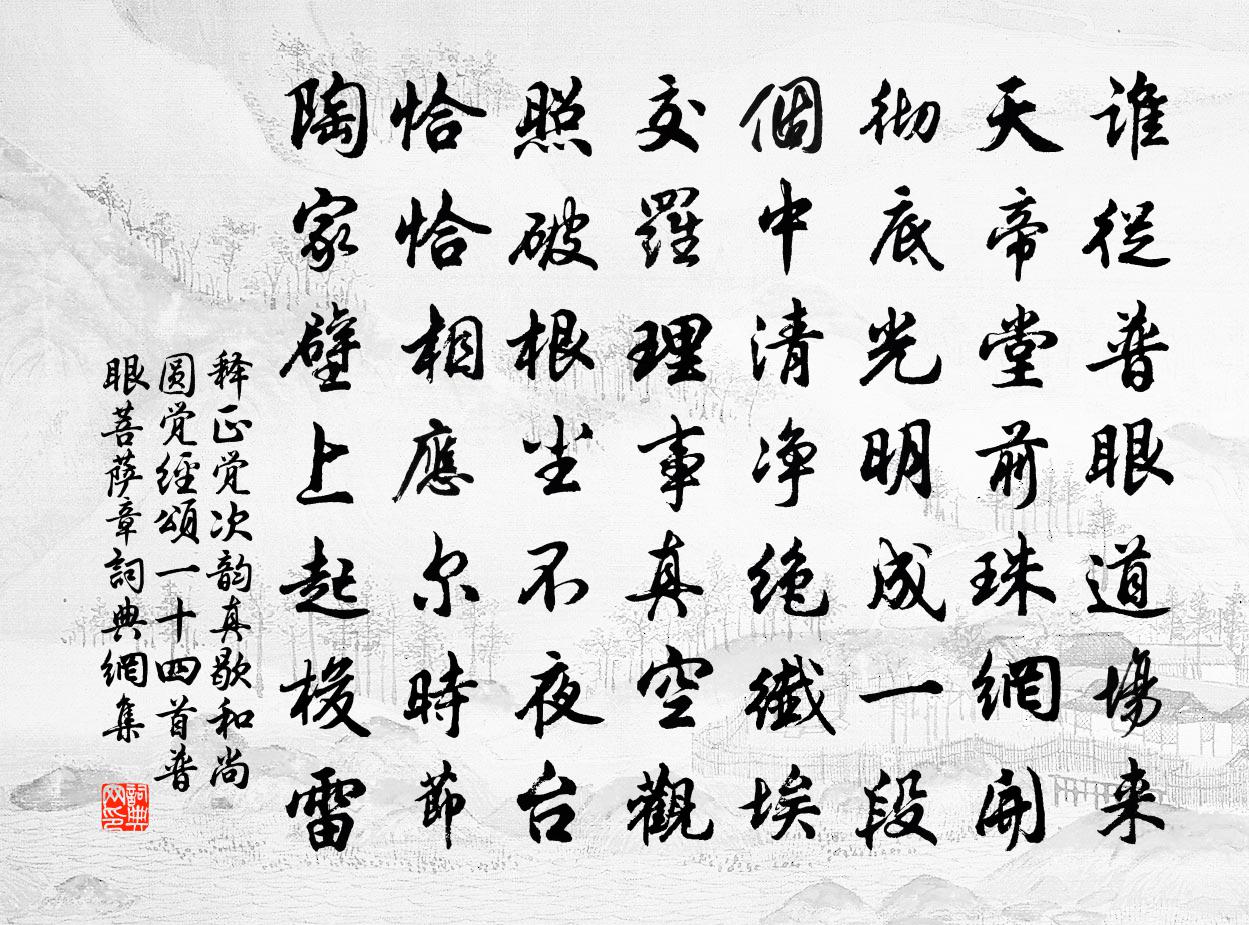 谁從普眼道場来
天帝堂前珠網開
彻底光明成一段
個中清净絶纖埃
交羅理事真空觀
照破根尘不夜台
恰恰相應尔時節
陶家壁上起梭雷
释正觉次韵真歇和尚
圆觉經頌一十四首普
眼菩萨章詞典網集
詞典网印